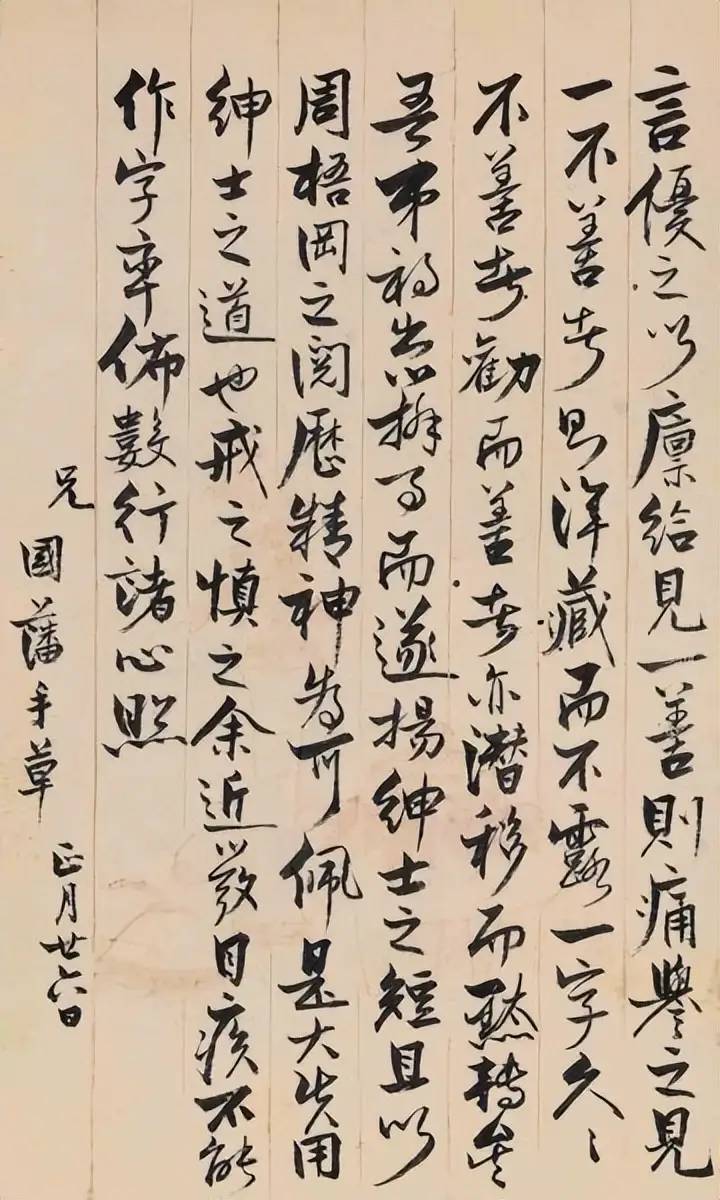 言優之以廩給見一善則痛譽之見
一不善者則渾藏而不露一字久〻
不善者勸而善者亦潛移而默轉矣
吾弟初出辦事而遂揚紳士之短且以
周梧岡之閱歷精神為可佩是大失用
紳士之道也戒之慎之余近發目疾不能
作字率佈數行諸心照
兄國藩手草 正月廿六日